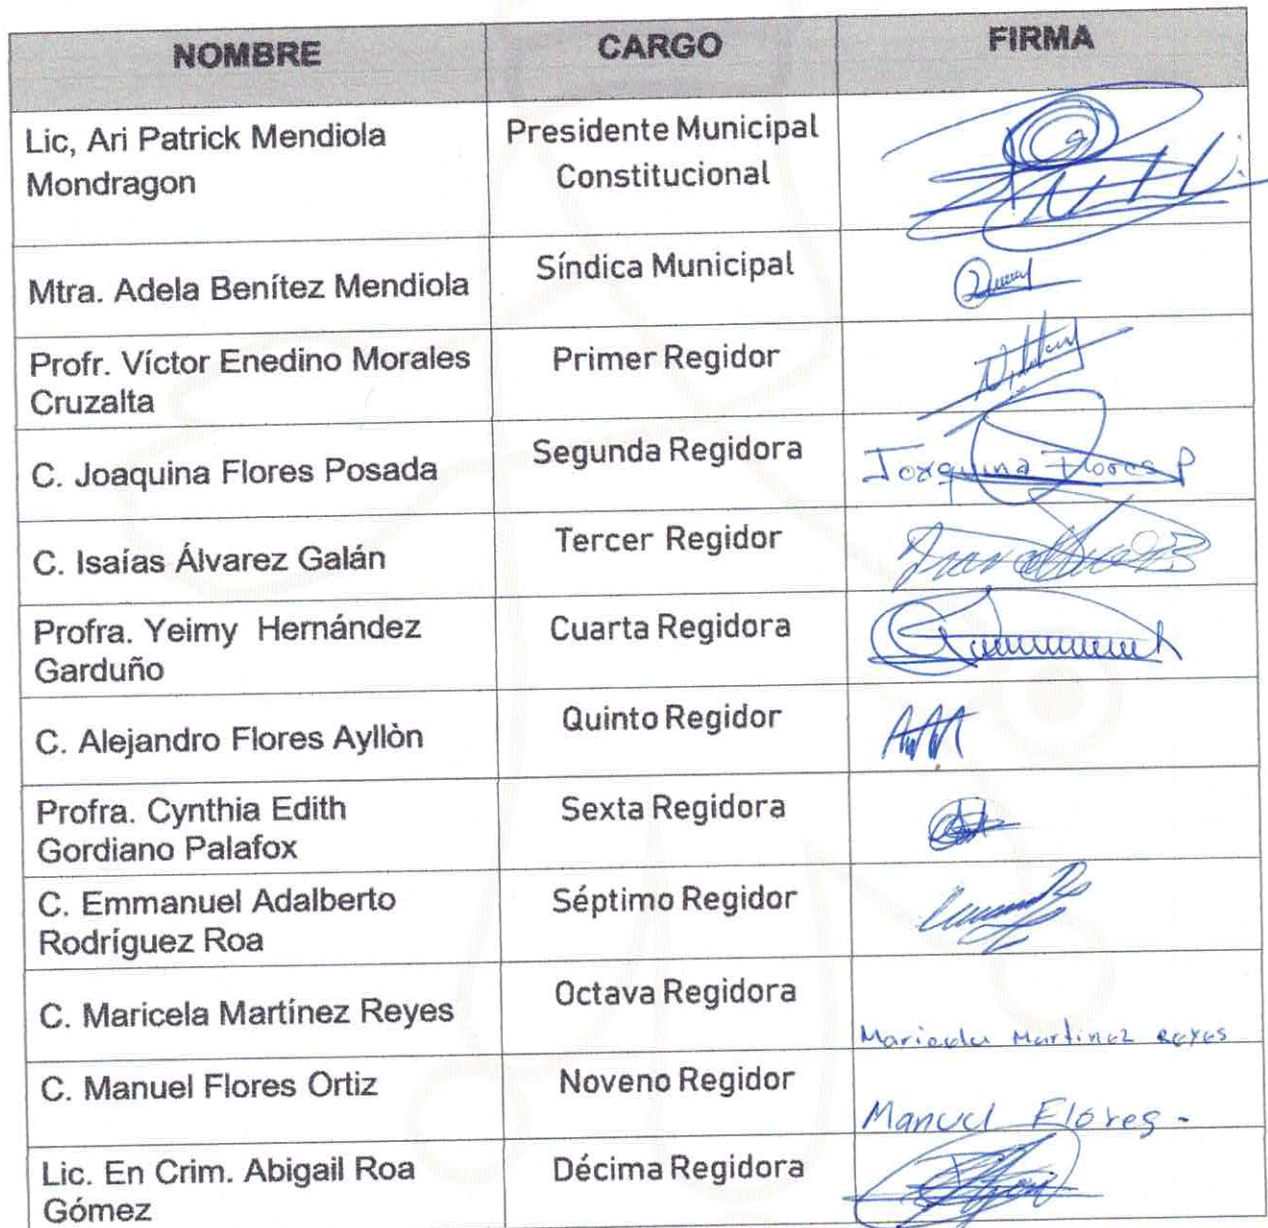 NOMBRE CARGO FIRMA
Lic, Ari Patrick Mendiola
Mondragon
Presidente Municipal
Constitucional
Mtra. Adela Benítez Mendiola
Síndica Municipal
Profr. Víctor Enedino Morales
Cruzalta
Primer Regidor
C. Joaquina Flores Posada
Segunda Regidora
Joaquina Flores P
C. Isaías Álvarez Galán
Tercer Regidor
Profra. Yeimy Hernández
Garduño
Cuarta Regidora
C. Alejandro Flores Ayllòn
Quinto Regidor
Profra. Cynthia Edith
Gordiano Palafox
Sexta Regidora
C. Emmanuel Adalberto
Rodríguez Roa
Séptimo Regidor
C. Maricela Martínez Reyes
Octava Regidora
Maricela Martinez Reyes
C. Manuel Flores Ortiz
Noveno Regidor
Manuel Flores -
Lic. En Crim. Abigail Roa
Gómez
Décima Regidora